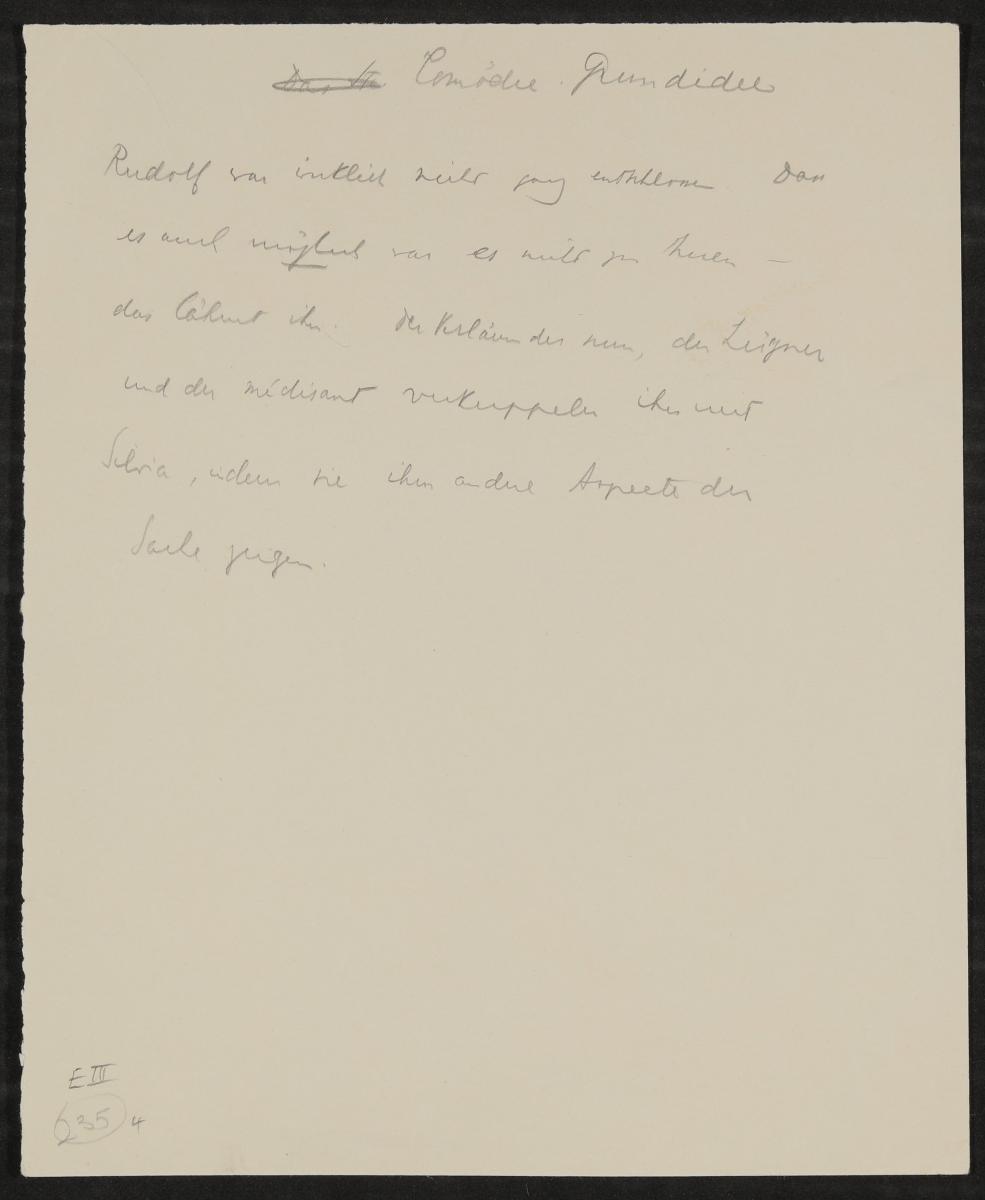 Comödie. Grundidee
Rudolf war wirklich nicht ganz entschlossen. Dass
es auch möglich war es nicht zu thuen –
das lähmt ihn. Der Verläumder nun, der Leugner
und der médisant verkuppeln ihn mit
Silvia, indem sie ihm andere Aspecte der
Sache zeigen.
E III
235 4